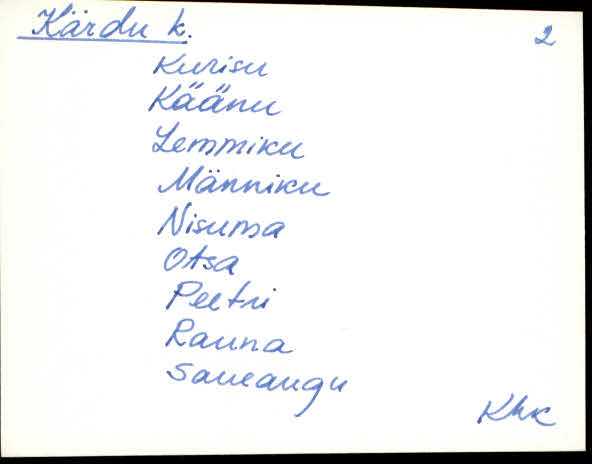 Kärdu k. 2
Kurisu
Käänu
Lemmiku
Männiku
Nisuma
Otsa
Peetri
Rauna
Saueaugu
Khk